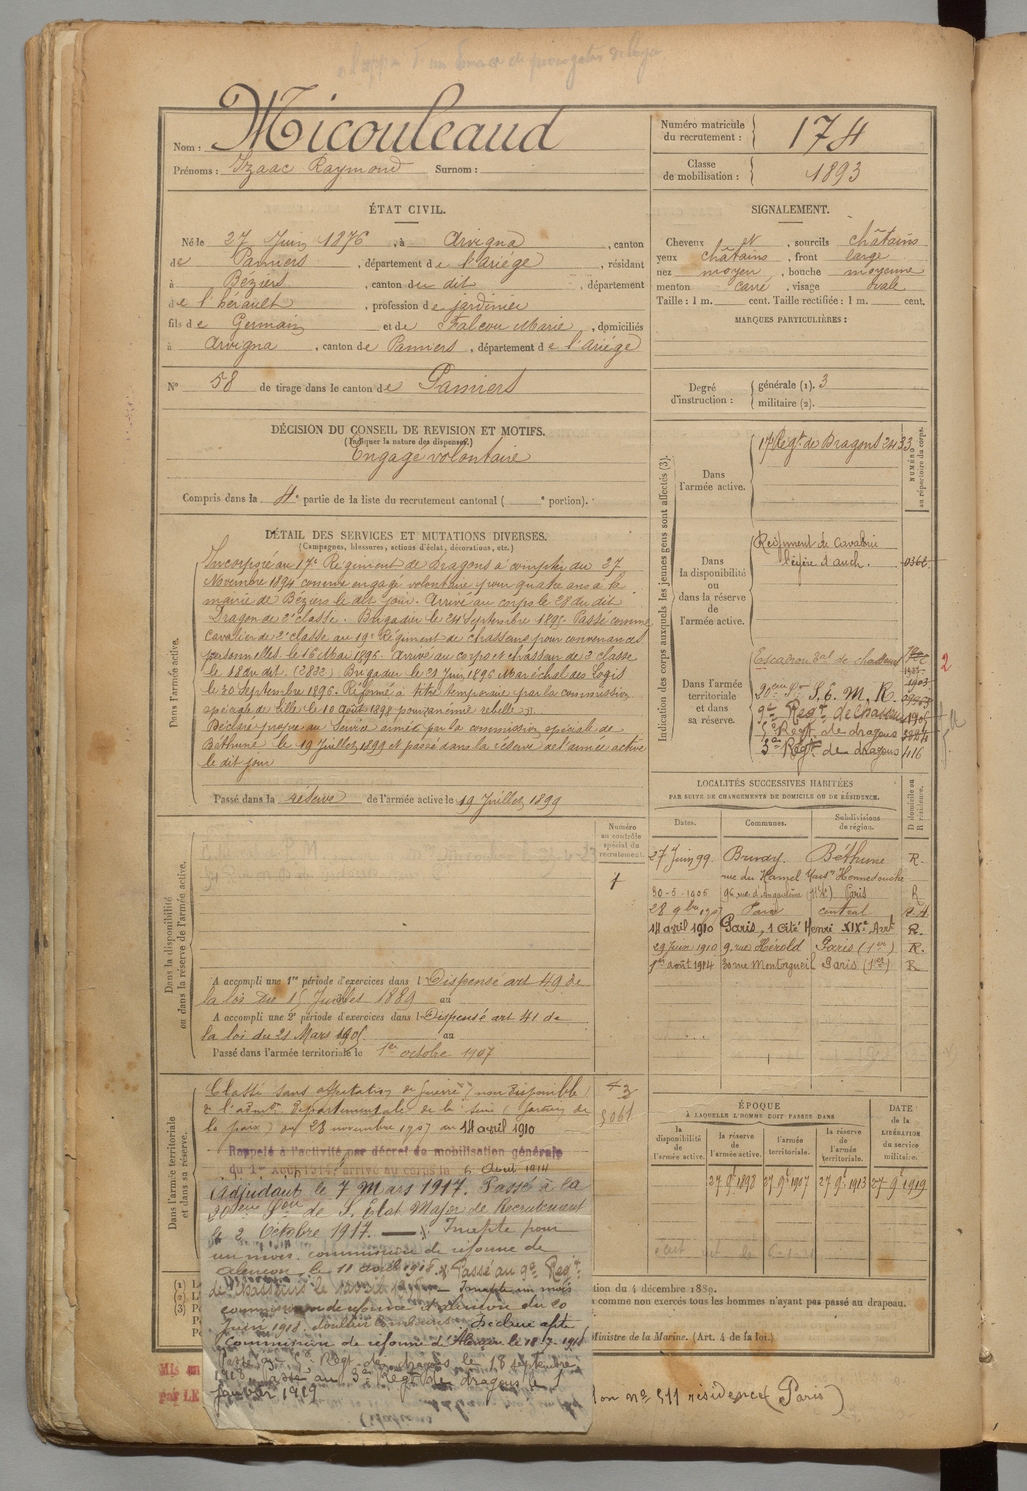 Nom : Micouleaud
Prénoms : Izaac Raymond Surnom :
Numéro matricule du recrutement : 174
Classe de mobilisation : 1893
ÉTAT CIVIL.
Né le 27 Juin 1876, à Arvigna, canton
de Pamiers, département de l'ariége, résidant
à Beziers, canton du dit, département
de l'hérault, profession de jardinier
fils de Germain et de Falcou Marie, domiciliés
à Arvigna, canton de Pamiers, département de l'ariége
N° 58 de tirage dans le canton de Pamiers
SIGNALEMENT.
Cheveux et, sourcils châtains
yeux châtains, front large
nez moyen, bouche moyenne
menton carré, visage ovale
Taille : 1 m. cent. Taille rectifiée : 1 m. cent.
MARQUES PARTICULIÈRES :
Degré d'instruction :
générale (1). 3
militaire (2).
DÉCISION DU CONSEIL DE REVISION ET MOTIFS.
(Indiquer la nature des dispenses.)
Engagé volontaire
Compris dans la 4e partie de la liste du recrutement cantonal ( e portion).
DÉTAIL DES SERVICES ET MUTATIONS DIVERSES.
(Campagnes, blessures, actions d'éclat, décorations, etc.)
Dans l'armée active.
Incorporé au 17e Régiment de Dragons à compter du 27
Novembre 1894 comme engagé volontaire pour quatre ans à la
mairie de Béziers le dit jour. Arrivé au corps le 28 du dit
Dragon de 2e classe. Brigadier le 24 Septembre 1895. Passé comme
Cavalier de 2e classe au 19e Régiment de chasseurs pour convenances
personnelles le 16 Mai 1896. Arrivé au corps et chasseur de 2e classe
le 18 du dit. Brigadier le 29 Juin 1896 Maréchal des Logis
le 30 Septembre 1896. Réformé à titre temporaire par la commission
spéciale de Lille le 10 août 1898 pour anémie rebelle
Déclaré propre au Service armé par la commission spéciale de
Béthune le 19 Juillet 1899 et passé dans la réserve de l'armée active
le dit jour
Passé dans la réserve de l'armée active le 19 Juillet 1899
Indication des corps auxquels les jeunes gens sont affectés (3).
NUMÉRO au répertoire du corps.
Dans l'armée active.
17 Régt de Dragons 2433
Dans la disponibilité ou dans la réserve de l'armée active.
Régiment de Cavalerie
légère d'auch.
Dans l'armée territoriale et dans sa réserve.
Escadron Bal de chasseurs
20eme Son S. E. M. R.
9e Régt de chasseurs
5e Régt de dragons
3e Régt de dragons 416
2
LOCALITÉS SUCCESSIVES HABITÉES
PAR SUITE DE CHANGEMENTS DE DOMICILE OU DE RÉSIDENCE.
Dates. Communes. Subdivisions de région. D domicile ou R résidence.
27 Juin 99. Bruay. Béthune R.
rue du Hamel
30-5-1906 96 rue d'Angoulême (11e) Paris R
28 9bre 1907 Paris central
14 avril 1910 Paris, 1 Cité Henri XIXe Art R.
29 Juin 1910 9 rue Hérold Paris (1er) R.
1er août 1914 30 rue Montorgueil Paris (1er) R
Dans la disponibilité ou dans la réserve de l'armée active.
Numéro au contrôle spécial du recrutement.
A accompli une 1re période d'exercices dans l Dispensé art 49 de
la loi du 15 Juillet 1889 au
A accompli une 2e période d'exercices dans l Dispensé art 41 de
la loi du 21 Mars 1905 au
Passé dans l'armée territoriale le 1er octobre 1907
Dans l'armée territoriale et dans sa réserve.
Classé sans affectation de Guerre, non disponible
Départementale de la Seine
la paix) du 28 novembre 1907 au 14 avril 1910
Rappelé à l'activité par décret de mobilisation générale
du 1er Août 1914, arrivé au corps le 6 Aout 1914
Adjudant le 7 Mars 1917. Passé à la
20eme Son de S. Etat Major de Recrutement
le 2 Octobre 1917. Inapte pour
un mois. commission de réforme de
Alençon le 11 avril 1918. Passé au 9e Régt
de chasseurs le Inapte un mois
commission de réforme d'Alençon du 20
Juin 1918. Déclaré apte
Commission de réforme d'Alençon le 18-7-1918
Passé au 5e Régt de dragons le 18 septembre
1918. Passé au 3e Régt de dragons le 1
Janvier 1919
Citations
ÉPOQUE
À LAQUELLE L'HOMME DOIT PASSER DANS
la disponibilité de l'armée active. la réserve de l'armée active. l'armée territoriale. la réserve de l'armée territoriale.
DATE de la LIBÉRATION du service militaire.
27 9e 1898 27 9e 1907 27 9e 1913 27 9e 1919
(1)
(2)
(3)
tion du 4 décembre 1889.
comme non exercés tous les hommes n'ayant pas passé au drapeau.
Ministre de la Marine. (Art. 4 de la loi.)
Mis en
par LE
lon no 511 résidence (Paris)